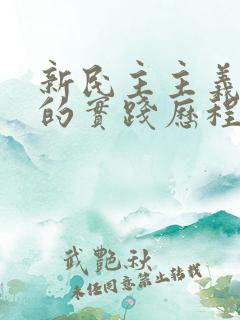 新民主主義
的實踐歷程
武艷秋
未經同意禁止轉載